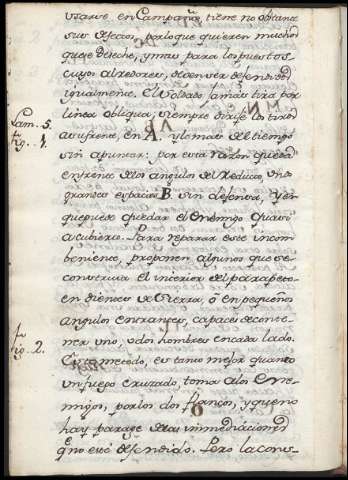 usarse en Campaña, tiene no obstante
sus defectos, por lo que quieren muchos
que se deseche, y mas para los puestos
cuyos alrededores, deven ser defendidos
igualmente. El Soldado jamas tira por
linea obliqua, siempre dirije los tiros
Lam. 5. a su frente, en A, y lo mas del tiempo
fig. 1. sin apuntar: por esta razon queda
enfrente de los angulos del Reducto, un
grande espacio B. sin defensa, y en
que puede quedar el enemigo quasi
a cubierto. Para reparar este incom-
beniente, proponen algunos que se
construia el interior del parapeto
en dientes de tierra, ò en pequeños
angulos entrantes, capaces de conte-
ner uno, u dos hombres en cada lado.
fig. 2. Este metodo, es tanto mejor quanto
un fuego cruzado, toma a los Ene-
migos, por los dos flancos, y que no
hay parage de las immediaciones
q no esté defendido. Pero la cons-